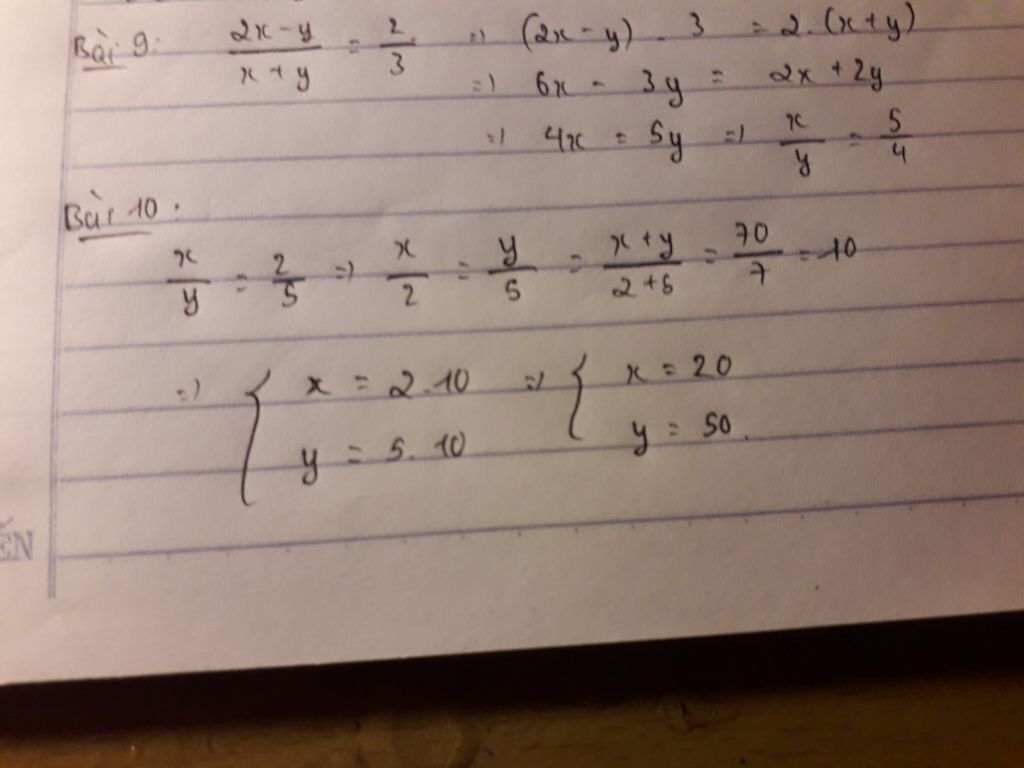 Bài 9: \frac{2x-y}{x+y} = \frac{2}{3} => (2x - y) . 3 = 2. (x+y)
=> 6x - 3y = 2x + 2y
=> 4x = 5y => \frac{x}{y} = \frac{5}{4}
Bài 10:
\frac{x}{y} = \frac{2}{5} => \frac{x}{2} = \frac{y}{5} = \frac{x+y}{2+5} = \frac{70}{7} = 10
=> { x = 2.10 => { x = 20
y = 5.10 y = 50.
ẾN